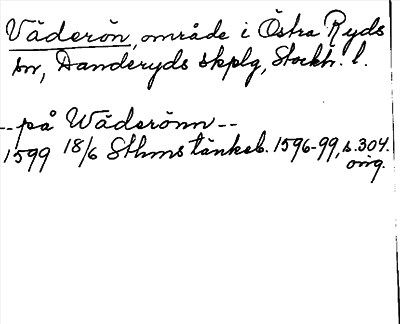 Väderön, område i Östra Ryds
sn, Danderyds skplg, Stockh. l.
--på Wäderönn--
1599 18/6 Sthms tänkeb. 1596-99, s. 304.
orig.